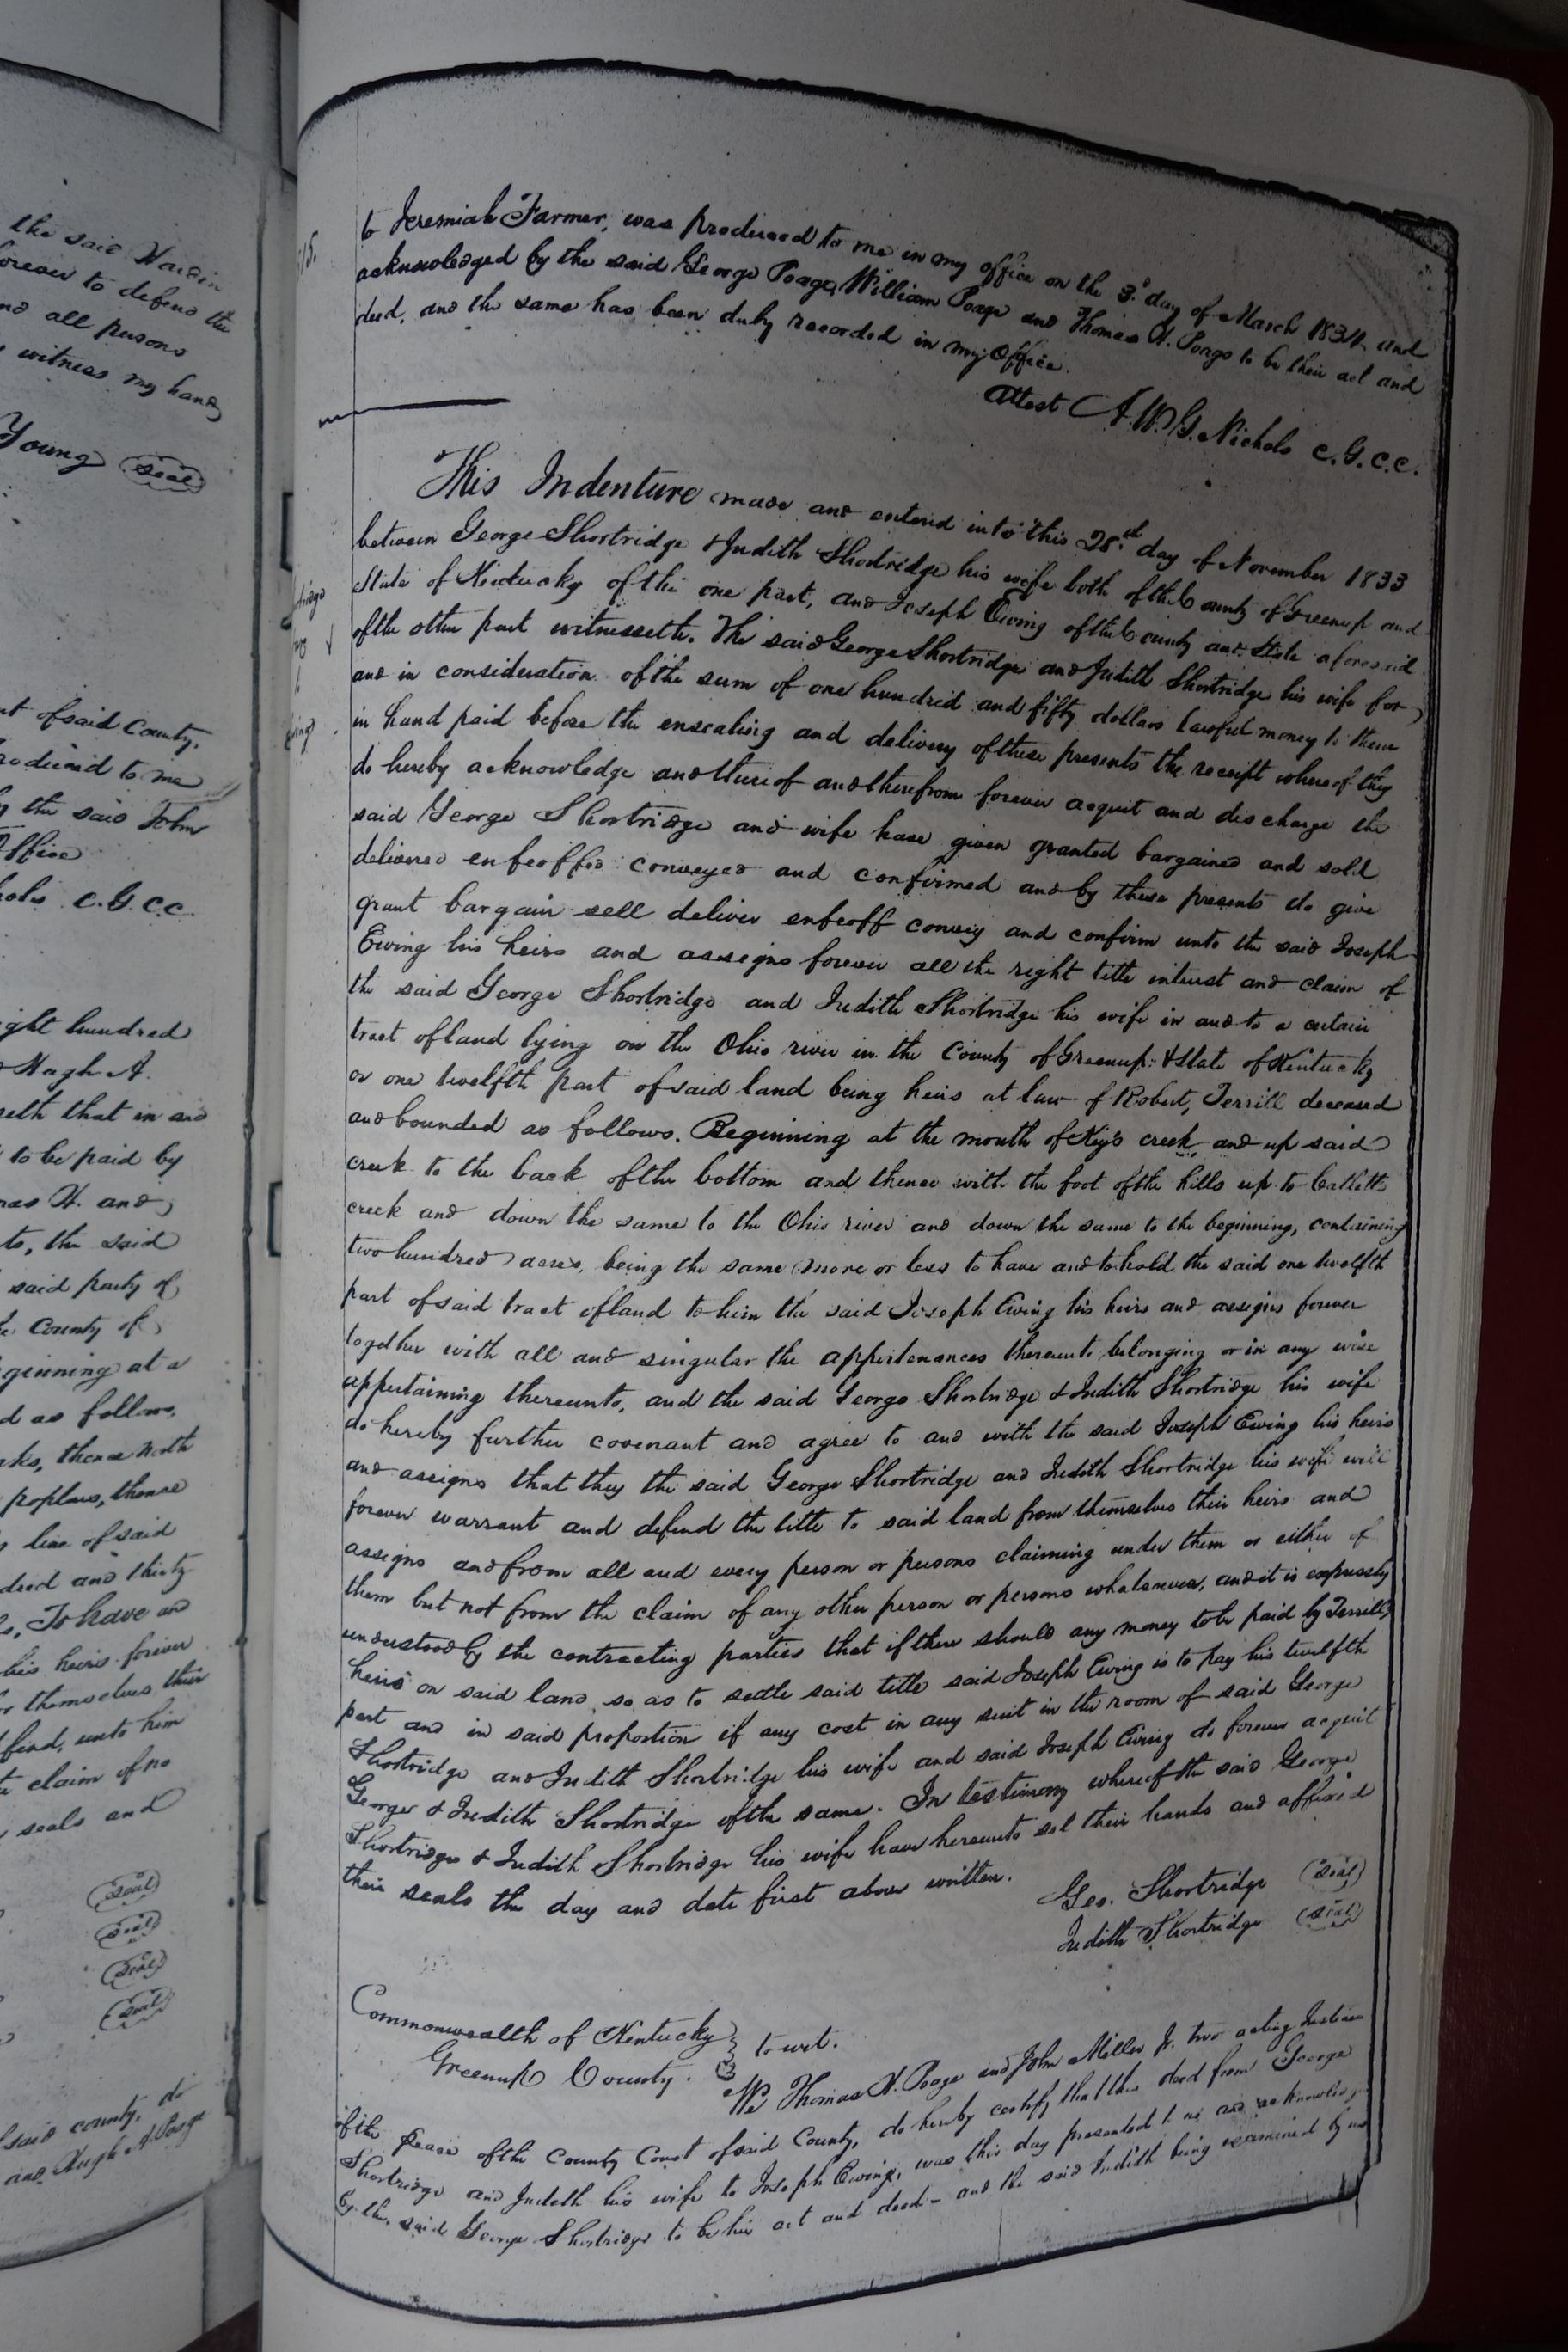 the said Hardin
forever to defend the
and all persons
witness my hand
Young (seal)
of said County.
produced to me
by the said John
Office
Nichols C.G.C.C.
eight hundred
Hugh A.
that in and
to be paid by
Thomas H. and
the said
said party of
County of
Beginning at a
as follows,
thence North
poplars, thence
line of said
hundred and thirty
To have and
his heirs forever
for themselves their
unto him
claim of no
seals and
(seal)
(seal)
(seal)
(seal)
said county, do
and Hugh A. Poage
to Jeremiah Farmer, was produced to me in my office on the 3d day of March 1834 and
acknowledged by the said George Poage, William Poage and Thomas H. Poage to be their act and
deed, and the same has been duly recorded in my office.
Attest A.W.G. Nichols C.G.C.C.
This Indenture made and entered into this 28th day of November 1833
between George Shortridge & Judith Shortridge his wife both of the County of Greenup and
State of Kentucky of the one part, and Joseph Ewing of the County and State aforesaid
of the other part witnesseth. The said George Shortridge and Judith Shortridge his wife for
and in consideration of the sum of one hundred and fifty dollars lawful money to them
in hand paid before the ensealing and delivery of these presents the receipt whereof they
do hereby acknowledge and thereof and therefrom forever acquit and discharge the
said George Shortridge and wife have given granted bargained and sold
delivered enfeoffed conveyed and confirmed and by these presents do give
grant bargain sell deliver enfeoff convey and confirm unto the said Joseph
Ewing his heirs and assigns forever all the right title interest and claim of
the said George Shortridge and Judith Shortridge his wife in and to a certain
tract of land lying on the Ohio river in the County of Greenup & State of Kentucky
or one twelfth part of said land being heirs at law of Robert Terrill deceased
and bounded as follows. Beginning at the mouth of Key's creek and up said
creek to the back of the bottom and thence with the foot of the hills up to Catletts
creek and down the same to the Ohio river and down the same to the beginning, containing
two hundred acres, being the same more or less to have and to hold the said one twelfth
part of said tract of land to him the said Joseph Ewing his heirs and assigns forever
together with all and singular the appertenances thereunto belonging or in any wise
appertaining thereunto, and the said George Shortridge & Judith Shortridge his wife
do hereby further covenant and agree to and with the said Joseph Ewing his heirs
and assigns that they the said George Shortridge and Judith Shortridge his wife will
forever warrant and defend the title to said land from themselves their heirs and
assigns and from all and every person or persons claiming under them or either of
them but not from the claim of any other person or persons whatsoever, and it is expressly
understood by the contracting parties that if there should any money to be paid by Terrill's
heirs on said land so as to settle said title said Joseph Ewing is to pay his twelfth
part and in said proportion if any cost in any suit in the room of said George
Shortridge and Judith Shortridge his wife and said Joseph Ewing do forever acquit
George & Judith Shortridge of the same. In testimony whereof the said George
Shortridge & Judith Shortridge his wife have hereunto set their hands and affixed
their seals the day and date first above written.
Geo. Shortridge (seal)
Judith Shortridge (seal)
Commonwealth of Kentucky } to wit.
Greenup County.
We Thomas H. Poage and John Miller Jr. two acting Justices
of the peace of the County Court of said County, do hereby certify that this deed from George
Shortridge and Judeth his wife to Joseph Ewing, was this day presented to us and acknowledged
by the said George Shortridge to be his act and deed - and the said Judith being examined by us